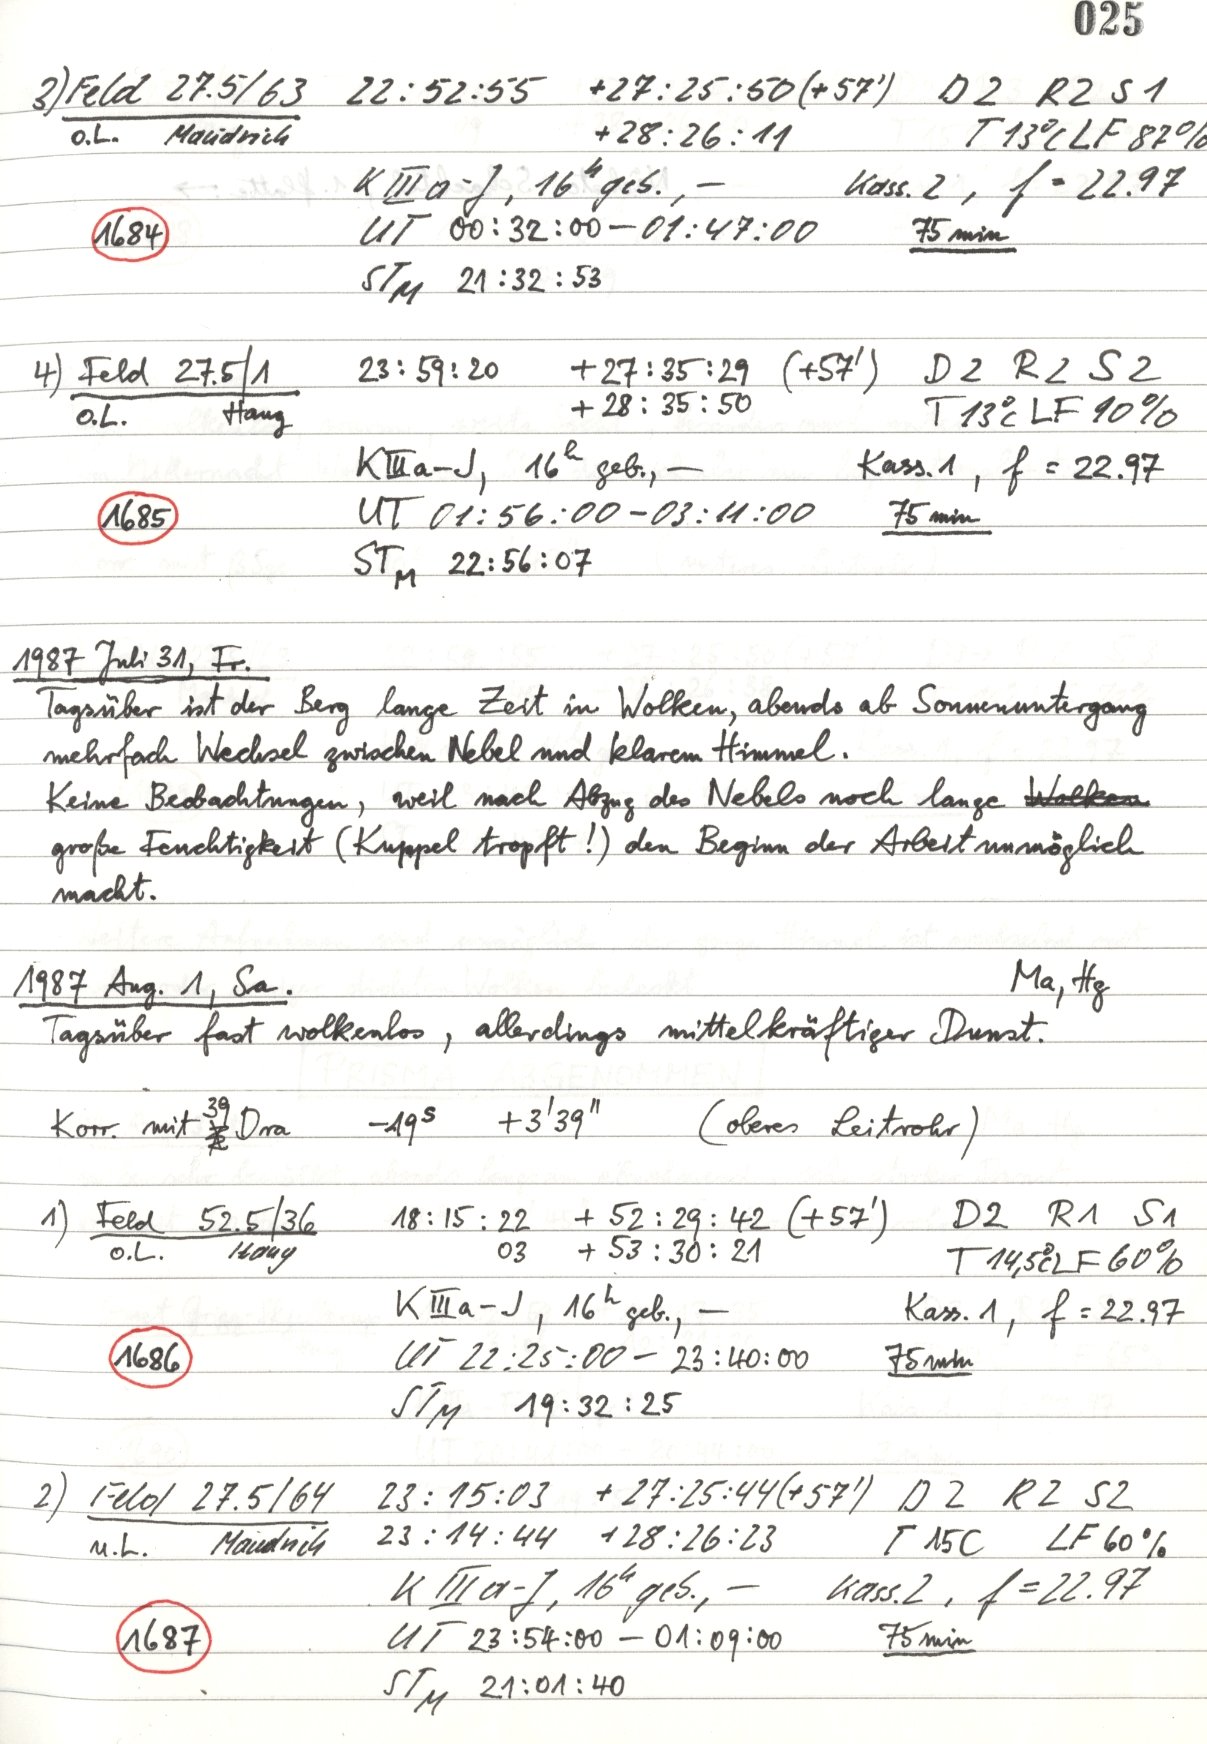 025
3) Feld 27.5/63 22:52:55 +27:25:50 (+57') D2 R2 S1
o.L. Maudrich +28:26:11 T 13°C LF 87%
K IIIa-J, 16h geb., — Kass. 2, f = 22.97
1684 UT 00:32:00 – 01:47:00 75 min
STM 21:32:53
4) Feld 27.5/1 23:59:20 +27:35:29 (+57') D2 R2 S2
o.L. Haug +28:35:50 T 13°C LF 90%
K IIIa-J, 16h geb., — Kass. 1, f = 22.97
1685 UT 01:56:00 – 03:11:00 75 min
STM 22:56:07
1987 Juli 31, Fr.
Tagsüber ist der Berg lange Zeit in Wolken, abends ab Sonnenuntergang
mehrfach Wechsel zwischen Nebel und klarem Himmel.
Keine Beobachtungen, weil nach Abzug des Nebels noch lange Wolken
große Feuchtigkeit (Kuppel tropft!) den Beginn der Arbeit unmöglich
macht.
1987 Aug. 1, Sa. Ma, Hg
Tagsüber fast wolkenlos, allerdings mittelkräftiger Dunst.
Korr. mit 39 Dra –19s +3'39" (oberes Leitrohr)
1) Feld 52.5/36 18:15:22 +52:29:42 (+57') D2 R1 S1
o.L. Haug 03 +53:30:21 T 14,5°C LF 60%
K IIIa-J, 16h geb., — Kass. 1, f = 22.97
1686 UT 22:25:00 – 23:40:00 75 min
STM 19:32:25
2) Feld 27.5/64 23:15:03 +27:25:44 (+57') D2 R2 S2
u.L. Maudrich 23:14:44 +28:26:23 T 15C LF 60%
K IIIa-J, 16h geb., — Kass. 2, f = 22.97
1687 UT 23:54:00 – 01:09:00 75 min
STM 21:01:40